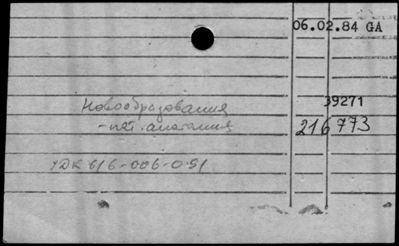 06.02.84 GA
39271
Новообразования
- пат. анатомия
216 773
УДК 616-006-091